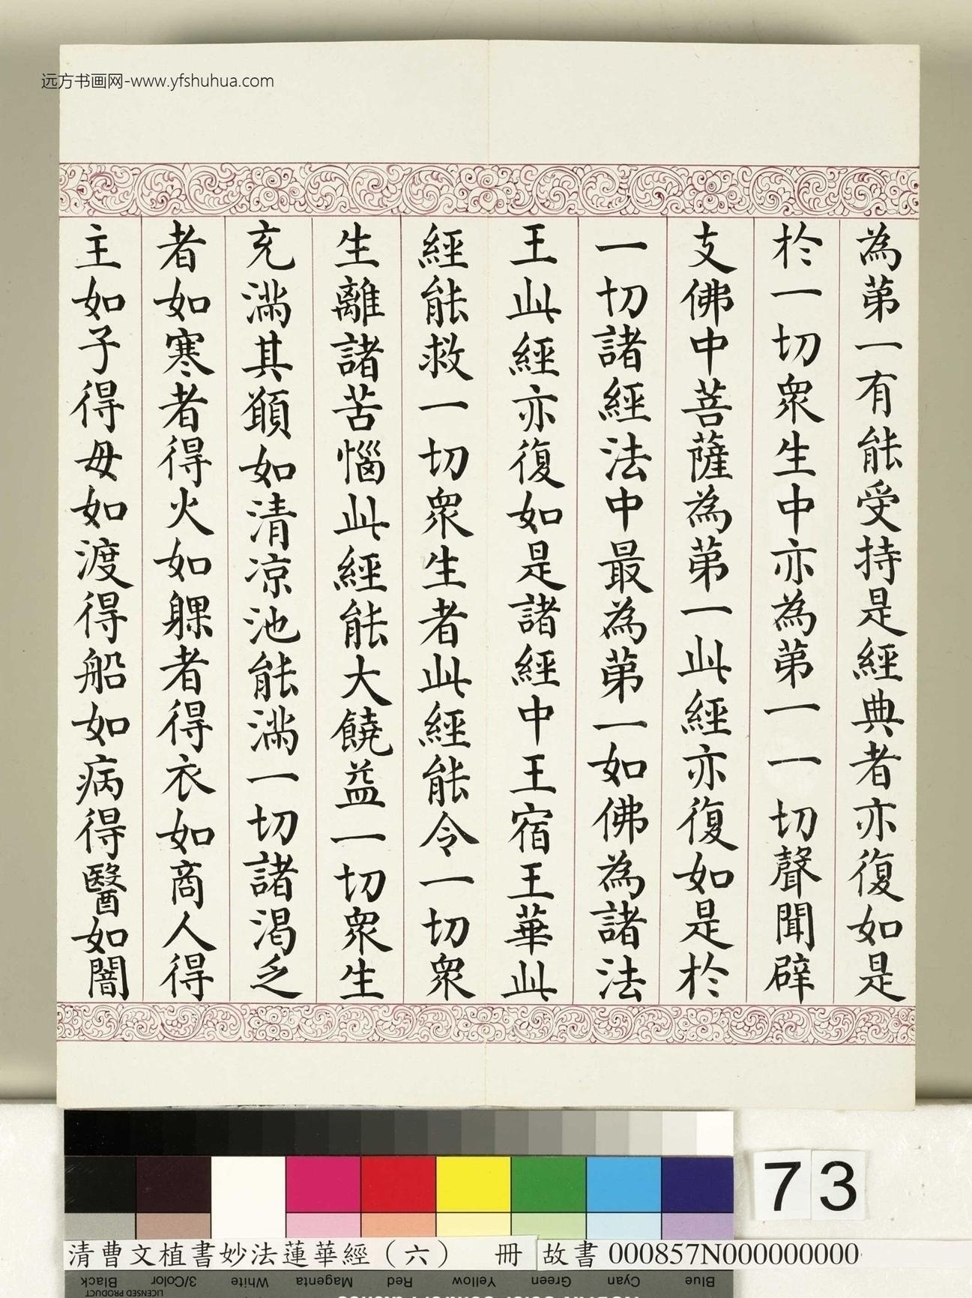 远方书画网-www.yfshuhua.com
為第一有能受持是經典者亦復如是
於一切衆生中亦為第一一切聲聞辟
支佛中菩薩為第一此經亦復如是於
一切諸經法中最為第一如佛為諸法
王此經亦復如是諸經中王宿王華此
經能救一切衆生者此經能令一切衆
生離諸苦惱此經能大饒益一切衆生
充滿其願如清涼池能滿一切諸渴乏
者如寒者得火如躶者得衣如商人得
主如子得母如渡得船如病得醫如闇
73
清曹文植書妙法蓮華經（六） 冊 故書000857N000000000
Black 3/Color White Magenta Red Yellow Green Cyan Blue
LICENSED PRODUCT